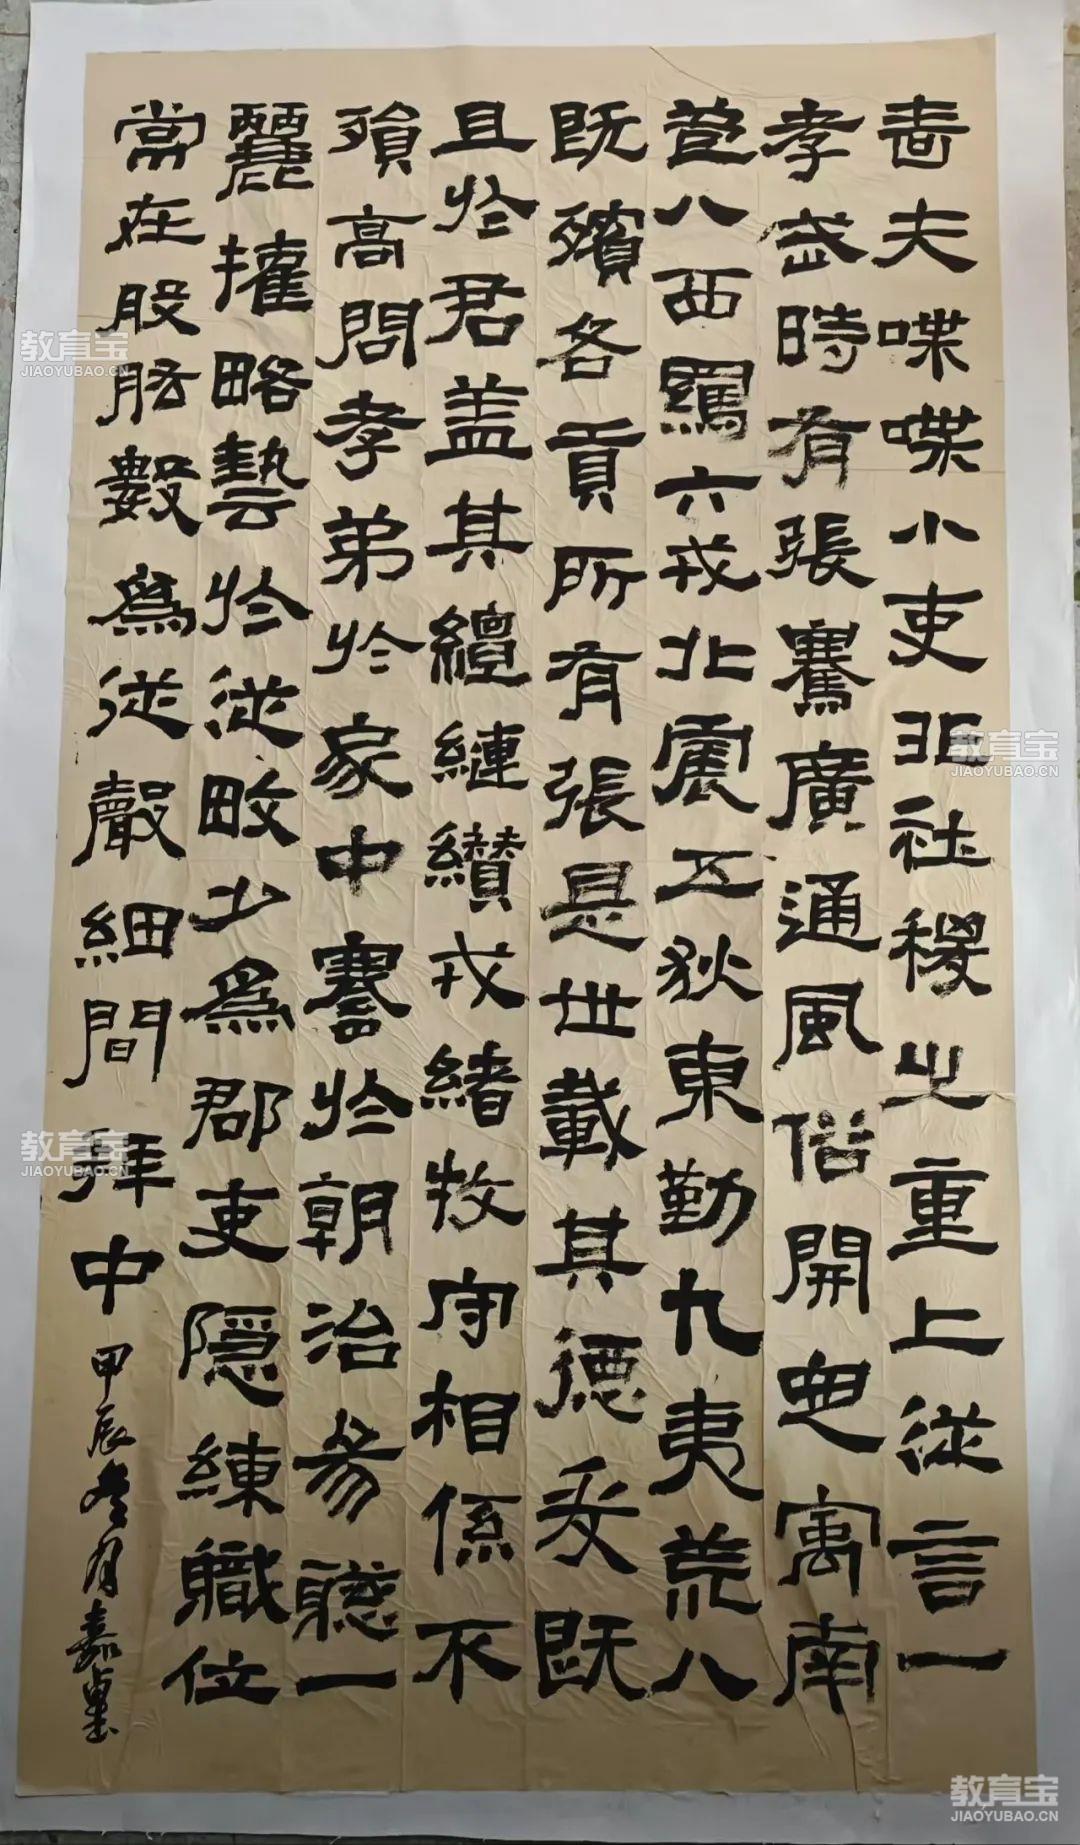 啬夫喋喋小吏非社稷之重上从言一
孝武時有張騫廣通風俗開定寓南
苞八西羈六戎北震五狄東勤九夷荒八
既殯各貢所有張是世載其德爰既
且於君盖其繵縺纘戎緒牧守相係不
殞高問孝弟於家中謇於朝治參聽一
麗權略藝於從畋少為郡吏隱練職位
常在股肱數為從聲細間拜中
甲辰冬月嘉
教育宝
JIAOYUBAO.CN
教育宝
JIAOYUBAO.CN
教育宝
JIAOYUBAO.CN
教育宝
JIAOYUBAO.CN